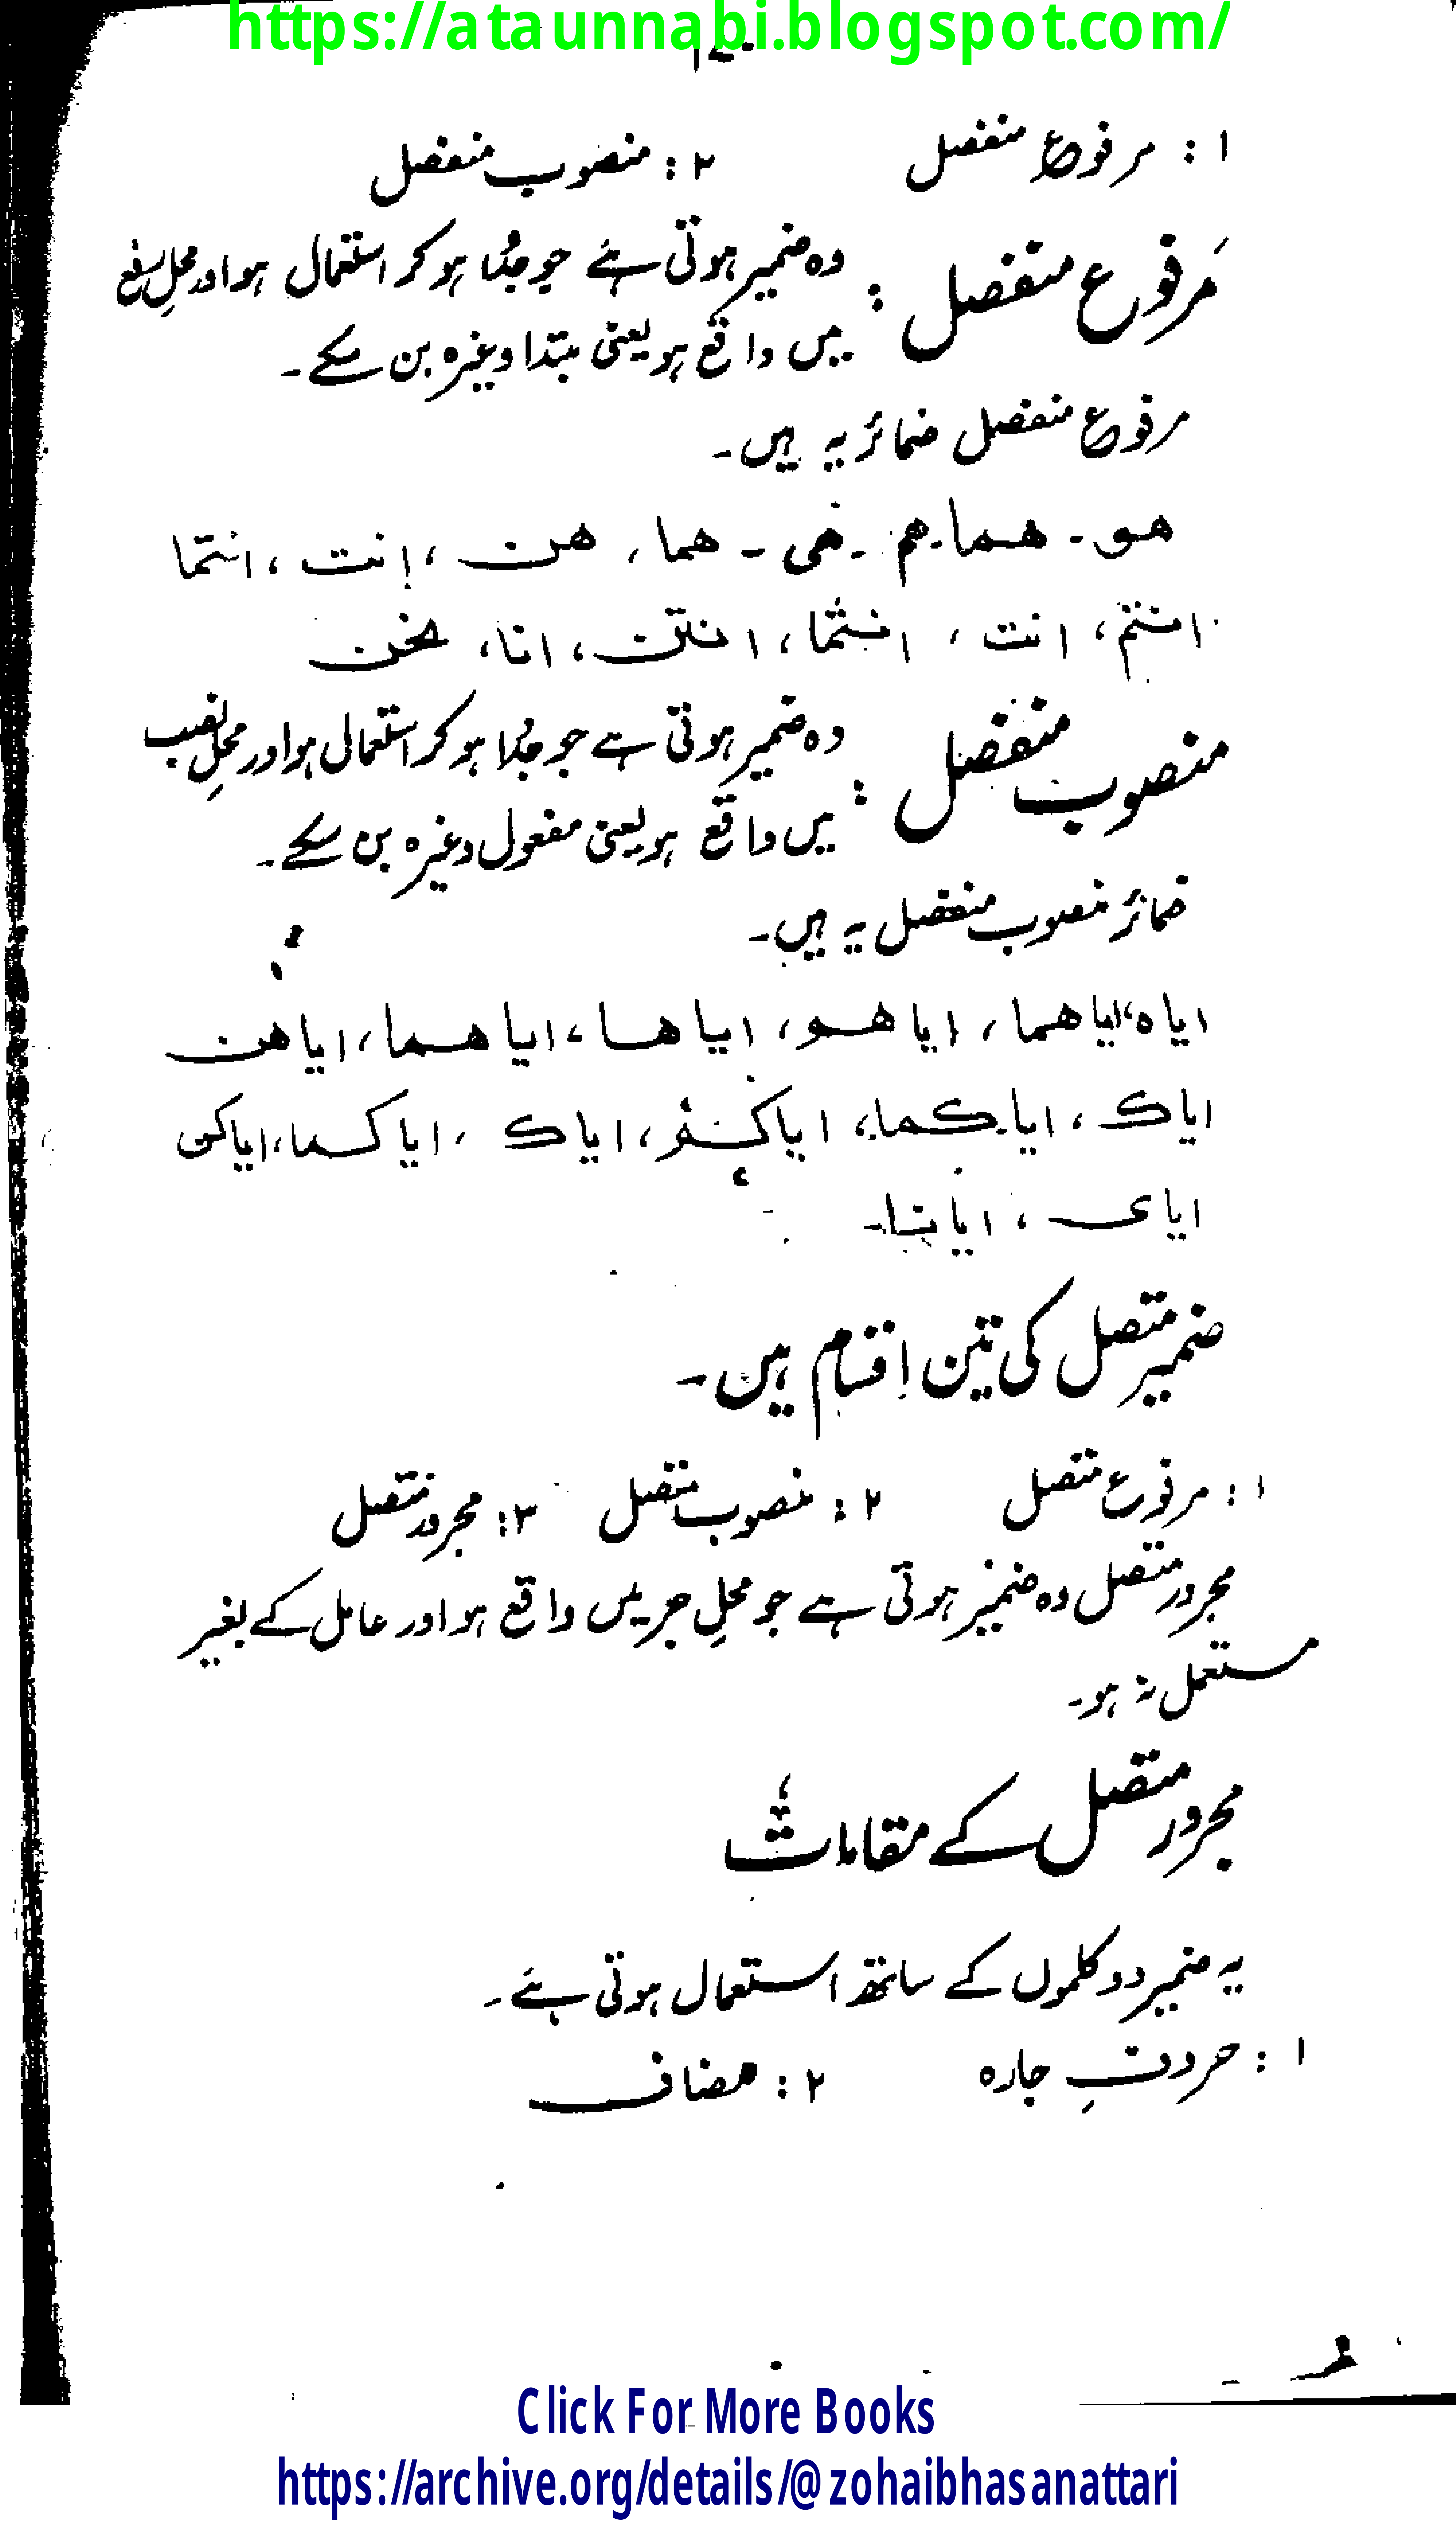 https://ataunnabi.blogspot.com/
۱۷۰
۱ : مرفوع منفصل ۲ : منصوب منفصل
مَرفوع منفصل : وہ ضمیر ہوتی ہے جو جُدا ہو کر استعمال ہو اور محلِ رفع
میں واقع ہو یعنی مبتدا وغیرہ بن سکے۔
مرفوع منفصل ضمائر یہ ہیں۔
هو۔ هما۔ هم۔ هی۔ هما، هن، إنت، انتما
انتم، انت، انتما، انتن، انا، نحن
منصوب منفصل : وہ ضمیر ہوتی ہے جو جُدا ہو کر استعمال ہو اور محلِ نصب
میں واقع ہو یعنی مفعول وغیرہ بن سکے۔
ضمائر منصوب منفصل یہ ہیں۔
ایاہ، ایاهما، ایاهو، ایاها، ایاهما، ایاهن
ایاك، ایاکما، ایاکم، ایاك، ایاکما، ایاکن
ایای، ایانا۔
ضمیر متصل کی تین اقسام ہیں۔
۱ : مرفوع متصل ۲ : منصوب متصل ۳ : مجرور متصل
مجرور متصل وہ ضمیر ہوتی ہے جو محلِ جر میں واقع ہو اور عامل کے بغیر
مستعمل نہ ہو۔
مجرور متصل کے مقامات
یہ ضمیر دو کلموں کے ساتھ استعمال ہوتی ہے۔
۱ : حروفِ جارہ ۲ : مضاف
Click For More Books
https://archive.org/details/@zohaibhasanattari